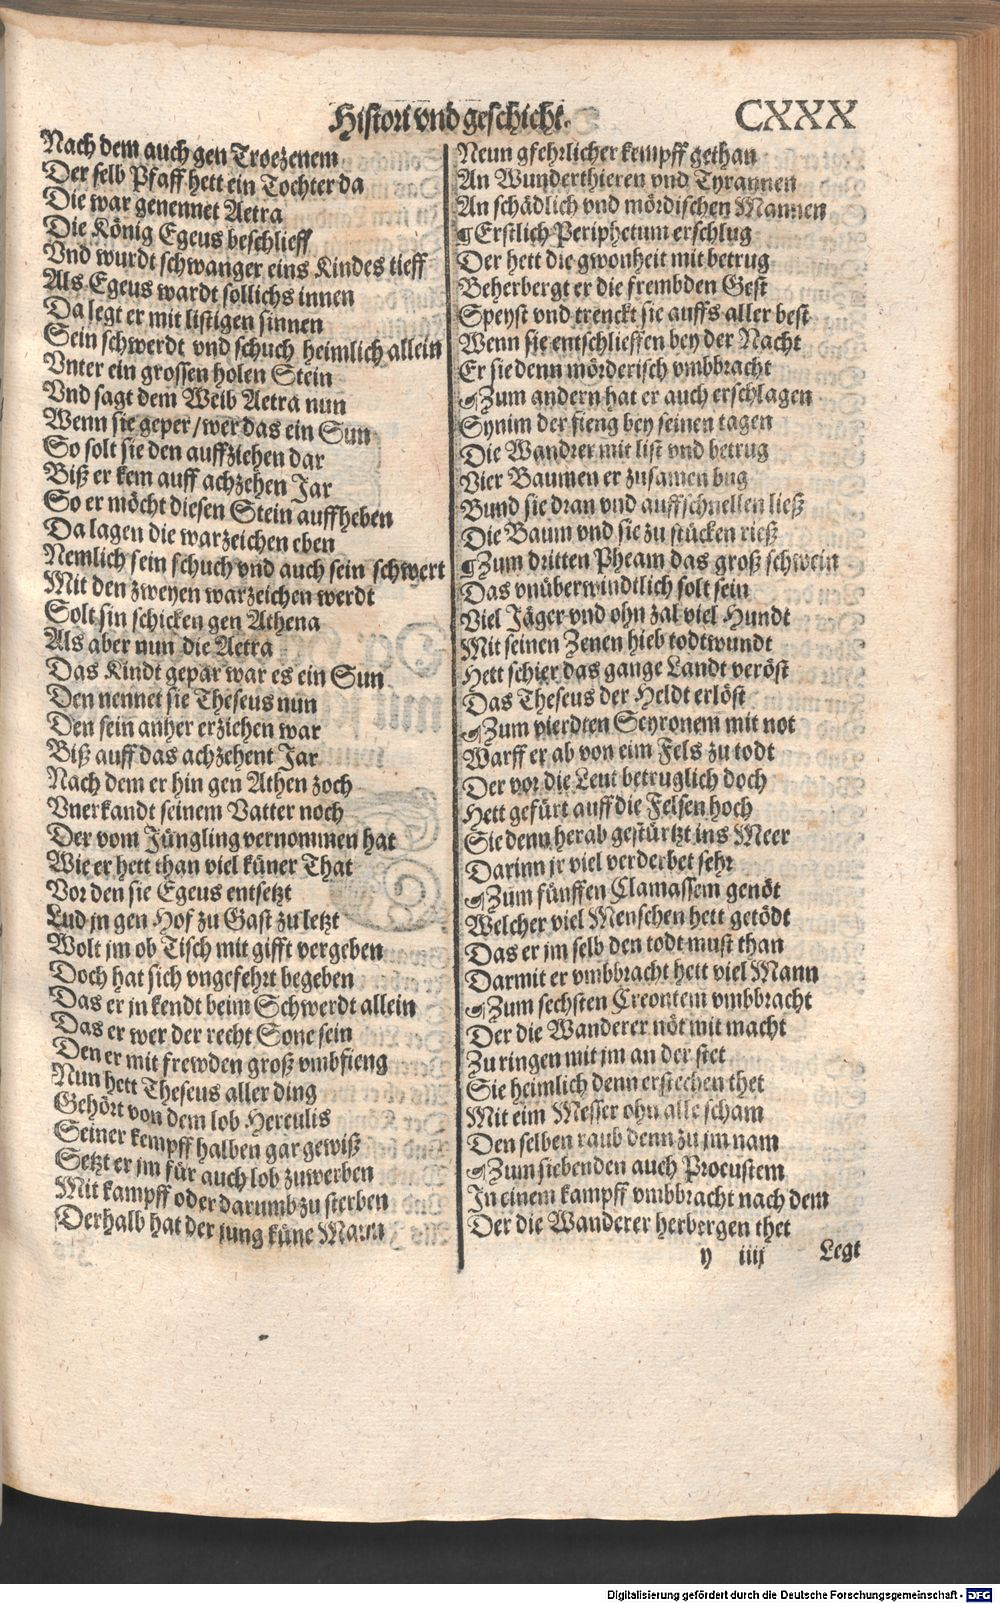 Histori vnd geschicht.
CXXX
Nach dem auch gen Troezenem
Der selb Pfaff hett ein Tochter da
Die war genennet Aetra
Die König Egeus beschlieff
Vnd wurdt schwanger eins Kindes tieff
Als Egeus wardt sollichs innen
Da legt er mit listigen sinnen
Sein schwerdt vnd schuch heimlich allein
Vnter ein grossen holen Stein
Vnd sagt dem Weib Aetra nun
Wenn sie geper / wer das ein Sun
So solt sie den auffziehen dar
Biß er kem auff achzehen Jar
So er möcht diesen Stein auffheben
Da lagen die warzeichen eben
Nemlich sein schuch vnd auch sein schwert
Mit den zweyen warzeichen werdt
Solt sin schicken gen Athena
Als aber nun die Aetra
Das Kindt gepar war es ein Sun
Den nennet sie Theseus nun
Den sein anher erziehen war
Biß auff das achzehent Jar
Nach dem er hin gen Athen zoch
Vnerkandt seinem Vatter noch
Der vom Jüngling vernommen hat
Wie er hett than viel küner That
Vor den sie Egeus entsetzt
Lud jn gen Hof zu Gast zu letzt
Wolt jm ob Tisch mit gifft vergeben
Doch hat sich vngefehrt begeben
Das er jn kendt beim Schwerdt allein
Das er wer der recht Sone sein
Den er mit frewden groß vmbfieng
Nun hett Theseus aller ding
Gehört von dem lob Herculis
Seiner kempff halben gar gewiß
Setzt er jm für auch lob zuwerben
Mit kampff oder darumb zu sterben
Derhalb hat der jung küne Mann
Neun gfehrlicher kempff gethan
An Wunderthieren vnd Tyrannen
An schädlich vnd mördischen Mannen
¶ Erstlich Periphetum erschlug
Der hett die gwonheit mit betrug
Beherbergt er die frembden Gest
Speyst vnd trenckt sie auffs aller best
Wenn sie entschlieffen bey der Nacht
Er sie denn mörderisch vmbbracht
¶ Zum andern hat er auch erschlagen
Synim der fieng bey seinen tagen
Die Wandrer mit list vnd betrug
Vier Baumen er zusamen bug
Bund sie dran vnd auffschnellen ließ
Die Baum vnd sie zu stücken rieß
¶ Zum dritten Pheam das groß schwein
Das vnüberwindtlich solt sein
Viel Jäger vnd ohn zal viel Hundt
Mit seinen Zenen hieb todtwundt
Hett schier das gantze Landt veröst
Das Theseus der Heldt erlöst
¶ Zum vierdten Scyronem mit not
Warff er ab von eim Fels zu todt
Der vor die Leut betruglich doch
Hett gefürt auff die Felsen hoch
Sie denn herab gestürtzt ins Meer
Darinn jr viel verderbet sehr
¶ Zum fünfften Clamassem genöt
Welcher viel Menschen hett getödt
Das er jm selb den todt must than
Darmit er vmbbracht hett viel Mann
¶ Zum sechsten Creontem vmbbracht
Der die Wanderer nöt mit macht
Zu ringen mit jm an der stet
Sie heimlich denn erstechen thet
Mit eim Messer ohn alle scham
Den selben raub denn zu jm nam
¶ Zum siebenden auch Procustem
In einem kampff vmbbracht nach dem
Der die Wanderer herbergen thet
y iiij
Legt
Digitalisierung gefördert durch die Deutsche Forschungsgemeinschaft - DFG